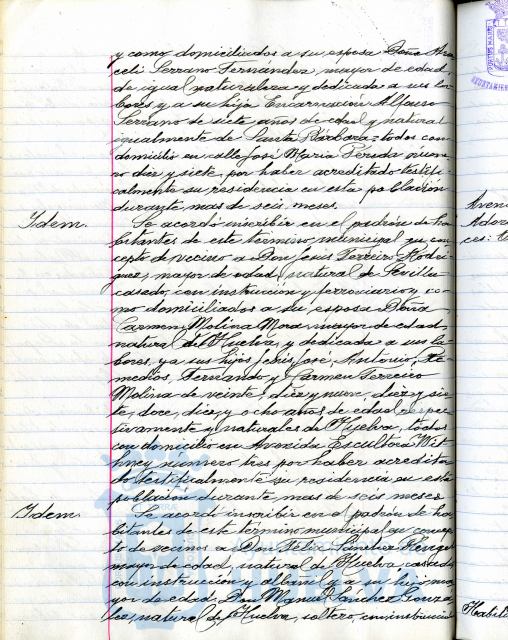 y como domiciliados a su esposa Doña Ara
celi Serrano Fernández, mayor de edad,
de igual naturaleza y dedicada a sus la
bores, y a su hija Encarnación Alfonso
Serrano de siete años de edad y natural
igualmente de Santa Bárbara; todos con
domicilio en calle José María Péreda núme
ro diez y siete, por haber acreditado testifi
calmente su residencia en esta población
durante mas de seis meses.
Idem. Se acordó inscribir en el padrón de ha
bitantes de este termino municipal en con
cepto de vecino a Don Jesus Ferreiro Rodri
guez, mayor de edad, natural de Sevilla
casado, con instrucción y ferroviario y co
mo domiciliados a su esposa Doña
Carmen Molina Mora, mayor de edad
natural de Huelva, y dedicada a sus la
bores, y a sus hijos Jesús, José, Antonio, Re
medios, Fernando y Carmen Ferreiro
Molina de veinte, diez y nueve, diez y sie
te, doce, diez y ocho años de edad respec
tivamente y naturales de Huelva, todos
con domicilio en Avenida Escultora Wit
hney número tres por haber acredita
do testifialmente su residencia en esta
población durante mas de seis meses
Idem. Se acordó inscribir en el padrón de ha
bitantes de este termino municipal en concep
to de vecinos a Don Felix Sánchez Rengel
mayor de edad, natural de Huelva, casado
con instrucción y albañil y a su hijo, ma
yor de edad, Don Manuel Sánchez Gonza
lez, natural de Huelva, soltero, con instrucción